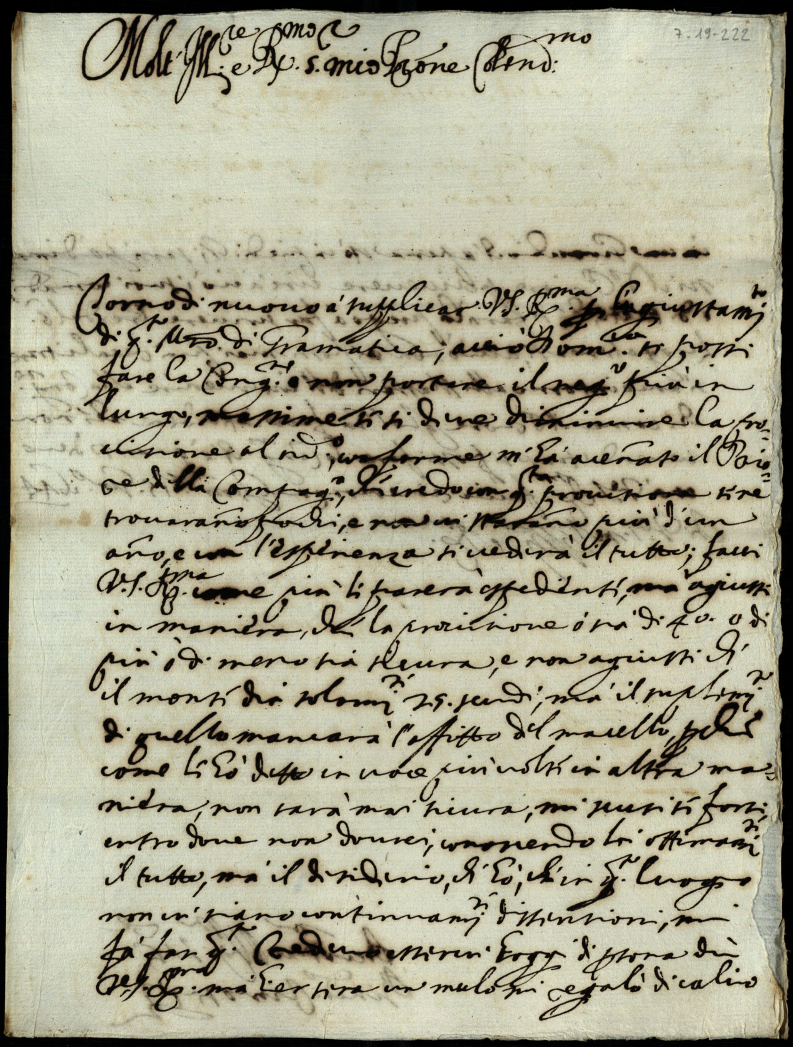 7-19-222
Molt' Ill:re e R.mo S.r mio P~rone Colend:mo
Torno di nuovo à supplicar V.S. R.ma p l'agiustam:to
di q.to M~ro di Gramatica, acciò Dom.ca si possi
fare la Cong.ne e non portare il neg.o più in
lungo, massime se si deve diminuire la pro=
visione al sud.o, conforme m'hà acenato il Prio=
re della Compag.a, ch'credo con q.ta provisione si re
trovarano pochi, e non vi starano più d'un
ano, e con l'esperienza si vederà il tutto; facci
V.S. R.ma come più li parerà espedienti, mà agiusti
in maniera, ch'la provisione ò sia di 40. ò di
più ò di meno sia sicura, e non agiusti ch'
il monte dia solam:te 25. scudi, mà il suplem:to
di quello mancarà l'affitto del macello, p che
come li hò detto in voce più volti in altra ma=
niera, non sarà mai sicura, mi scusi se forsi
entro dove non dovrei, conoscendo lei ottimam:te
il tutto, mà il desiderio, ch'hò, ch'in q.to luogo
non vi siano continuam:te dissensioni, mi
fà far q.to Credevo esservi hoggi di psona da
V.S. R.ma mà hier sera un mulo mi regalò di calcio